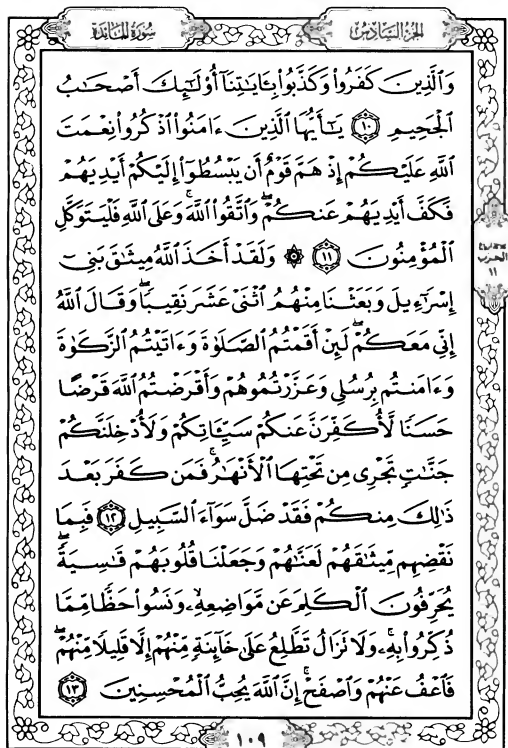 سُورَةُ المَائِدَةِ
الجُزْءُ السَّادِسُ
وَٱلَّذِينَ كَفَرُوا۟ وَكَذَّبُوا۟ بِـَٔايَـٰتِنَآ أُو۟لَـٰٓئِكَ أَصْحَـٰبُ
ٱلْجَحِيمِ ١٠ يَـٰٓأَيُّهَا ٱلَّذِينَ ءَامَنُوا۟ ٱذْكُرُوا۟ نِعْمَتَ
ٱللَّهِ عَلَيْكُمْ إِذْ هَمَّ قَوْمٌ أَن يَبْسُطُوٓا۟ إِلَيْكُمْ أَيْدِيَهُمْ
فَكَفَّ أَيْدِيَهُمْ عَنكُمْ ۖ وَٱتَّقُوا۟ ٱللَّهَ ۚ وَعَلَى ٱللَّهِ فَلْيَتَوَكَّلِ
ٱلْمُؤْمِنُونَ ١١ ۞ وَلَقَدْ أَخَذَ ٱللَّهُ مِيثَـٰقَ بَنِىٓ
إِسْرَٰٓءِيلَ وَبَعَثْنَا مِنْهُمُ ٱثْنَىْ عَشَرَ نَقِيبًا ۖ وَقَالَ ٱللَّهُ
إِنِّى مَعَكُمْ ۖ لَئِنْ أَقَمْتُمُ ٱلصَّلَوٰةَ وَءَاتَيْتُمُ ٱلزَّكَوٰةَ
وَءَامَنتُم بِرُسُلِى وَعَزَّرْتُمُوهُمْ وَأَقْرَضْتُمُ ٱللَّهَ قَرْضًا
حَسَنًا لَّأُكَفِّرَنَّ عَنكُمْ سَيِّـَٔاتِكُمْ وَلَأُدْخِلَنَّكُمْ
جَنَّـٰتٍ تَجْرِى مِن تَحْتِهَا ٱلْأَنْهَـٰرُ ۚ فَمَن كَفَرَ بَعْدَ
ذَٰلِكَ مِنكُمْ فَقَدْ ضَلَّ سَوَآءَ ٱلسَّبِيلِ ١٢ فَبِمَا
نَقْضِهِم مِّيثَـٰقَهُمْ لَعَنَّـٰهُمْ وَجَعَلْنَا قُلُوبَهُمْ قَـٰسِيَةً ۖ
يُحَرِّفُونَ ٱلْكَلِمَ عَن مَّوَاضِعِهِۦ ۙ وَنَسُوا۟ حَظًّا مِّمَّا
ذُكِّرُوا۟ بِهِۦ ۚ وَلَا تَزَالُ تَطَّلِعُ عَلَىٰ خَآئِنَةٍ مِّنْهُمْ إِلَّا قَلِيلًا مِّنْهُمْ ۖ
فَٱعْفُ عَنْهُمْ وَٱصْفَحْ ۚ إِنَّ ٱللَّهَ يُحِبُّ ٱلْمُحْسِنِينَ ١٣
الحزب
١١
١٠٩